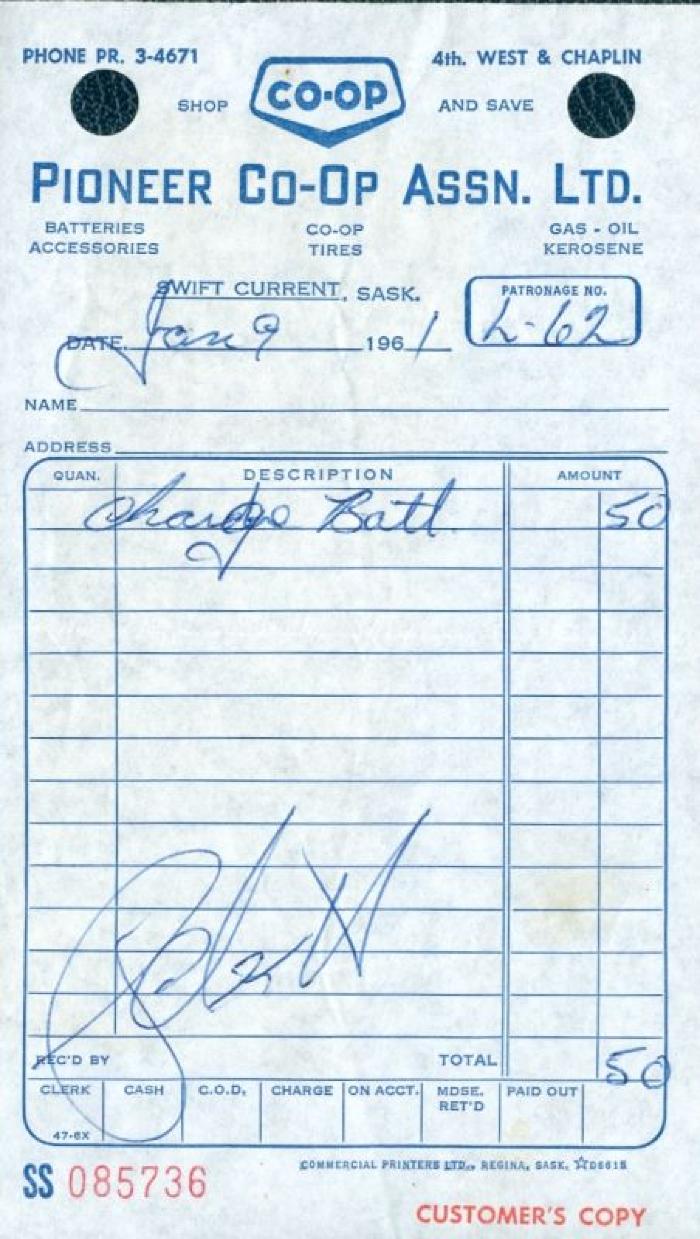 PHONE PR. 3-4671 4th. WEST & CHAPLIN
SHOP CO-OP AND SAVE
PIONEER CO-OP ASSN. LTD.
BATTERIES CO-OP GAS - OIL
ACCESSORIES TIRES KEROSENE
SWIFT CURRENT, SASK. PATRONAGE NO.
DATE. Jan 9 1961 L-62
NAME
ADDRESS
QUAN. DESCRIPTION AMOUNT
Charge Batt. 50
REC'D BY TOTAL 50
CLERK CASH C.O.D. CHARGE ON ACCT. MDSE. RET'D PAID OUT
47-6X
COMMERCIAL PRINTERS LTD., REGINA, SASK.
SS 085736
CUSTOMER'S COPY